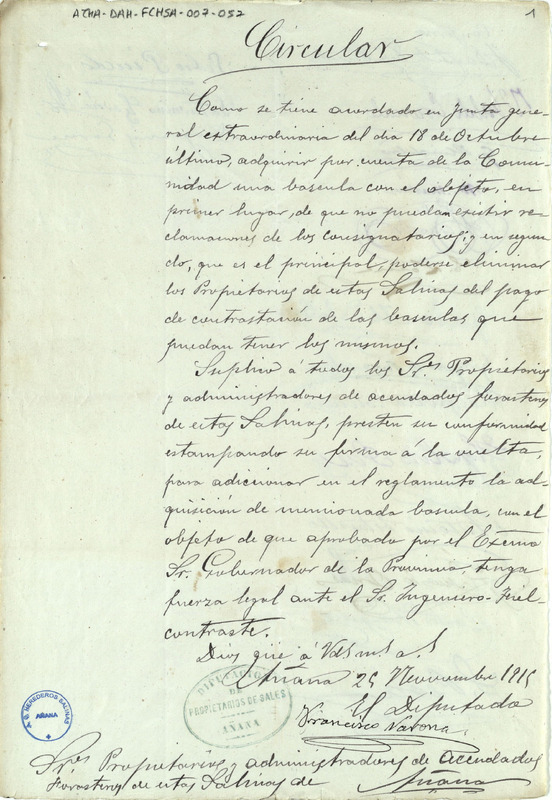 ATHA-DAH-FCHSA-007-052
1
Circular
Como se tiene acordado en Junta gene-
ral extraordinaria del dia 18 de Octubre
último, adquirir por cuenta de la Comu-
nidad una bascula con el objeto, en
primer lugar, de que no puedan existir re-
clamaciones de los consignatarios; y en segun-
do, que es el principal, poderse eliminar
los Propietarios de estas Salinas del pago
de contrastación de las basculas que
puedan tener los mismos.
Suplico a todos los Sres Propietarios
y administradores de acendados forasteros
de estas Salinas, presten su conformidad
estampando su firma á la vuelta,
para adicionar en el reglamento la ad-
quisición de mencionada bascula, con el
objeto de que aprobado por el Excmo
Sr. Gobernador de la Provincia, tenga
fuerza legal ante el Sr. Ingeniero-Fiel-
contraste.
Dios güe á Vds ms. as.
Añana 25 Noviembre 1915
El Diputado
Francisco Varona
DIPUTACION
DE
PROPIETARIOS DE SALES
AÑANA
HEREDEROS SALINAS
AÑANA
Sres Propietarios y administradores de acendados
forasteros de estas Salinas de Añana